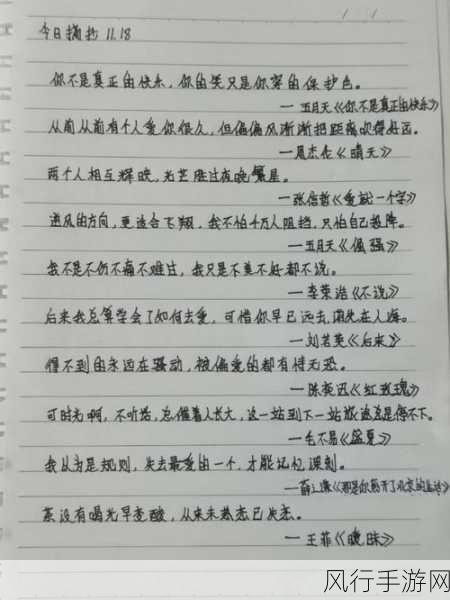 今日摘抄 11.18
你不是真正的快乐,你的笑只是你穿的保护色。
—五月天《你不是真正的快乐》
从前从前有个人爱你很久,但偏偏风渐渐把距离吹得好远。
—周杰伦《晴天》
两个人相互辉映,光芒胜过夜晚繁星。
—张信哲《爱就一个字》
逆风的方向,更适合飞翔,我不怕千万人阻挡,只怕自己投降。
—五月天《倔强》
我不是不伤不痛不难过,我只是不美不好都不说。
—李荣浩《不说》
后来我总算学会了如何去爱,可惜你早已远去,消失在人海。
—刘若英《后来》
得不到的永远在骚动,被偏爱的都有恃无恐。
—陈奕迅《红玫瑰》
可时光啊,不听话,总催着人长大,这一站到下一站旅途总是停不下。
—毛不易《盛夏》
我以为是规则,失去最爱的一个,才能记忆深刻。
—薛之谦《那是你离开了北京的生活》
茶没有喝光早变酸,从来未热恋已失恋。
—王菲《暧昧》
风行手游网